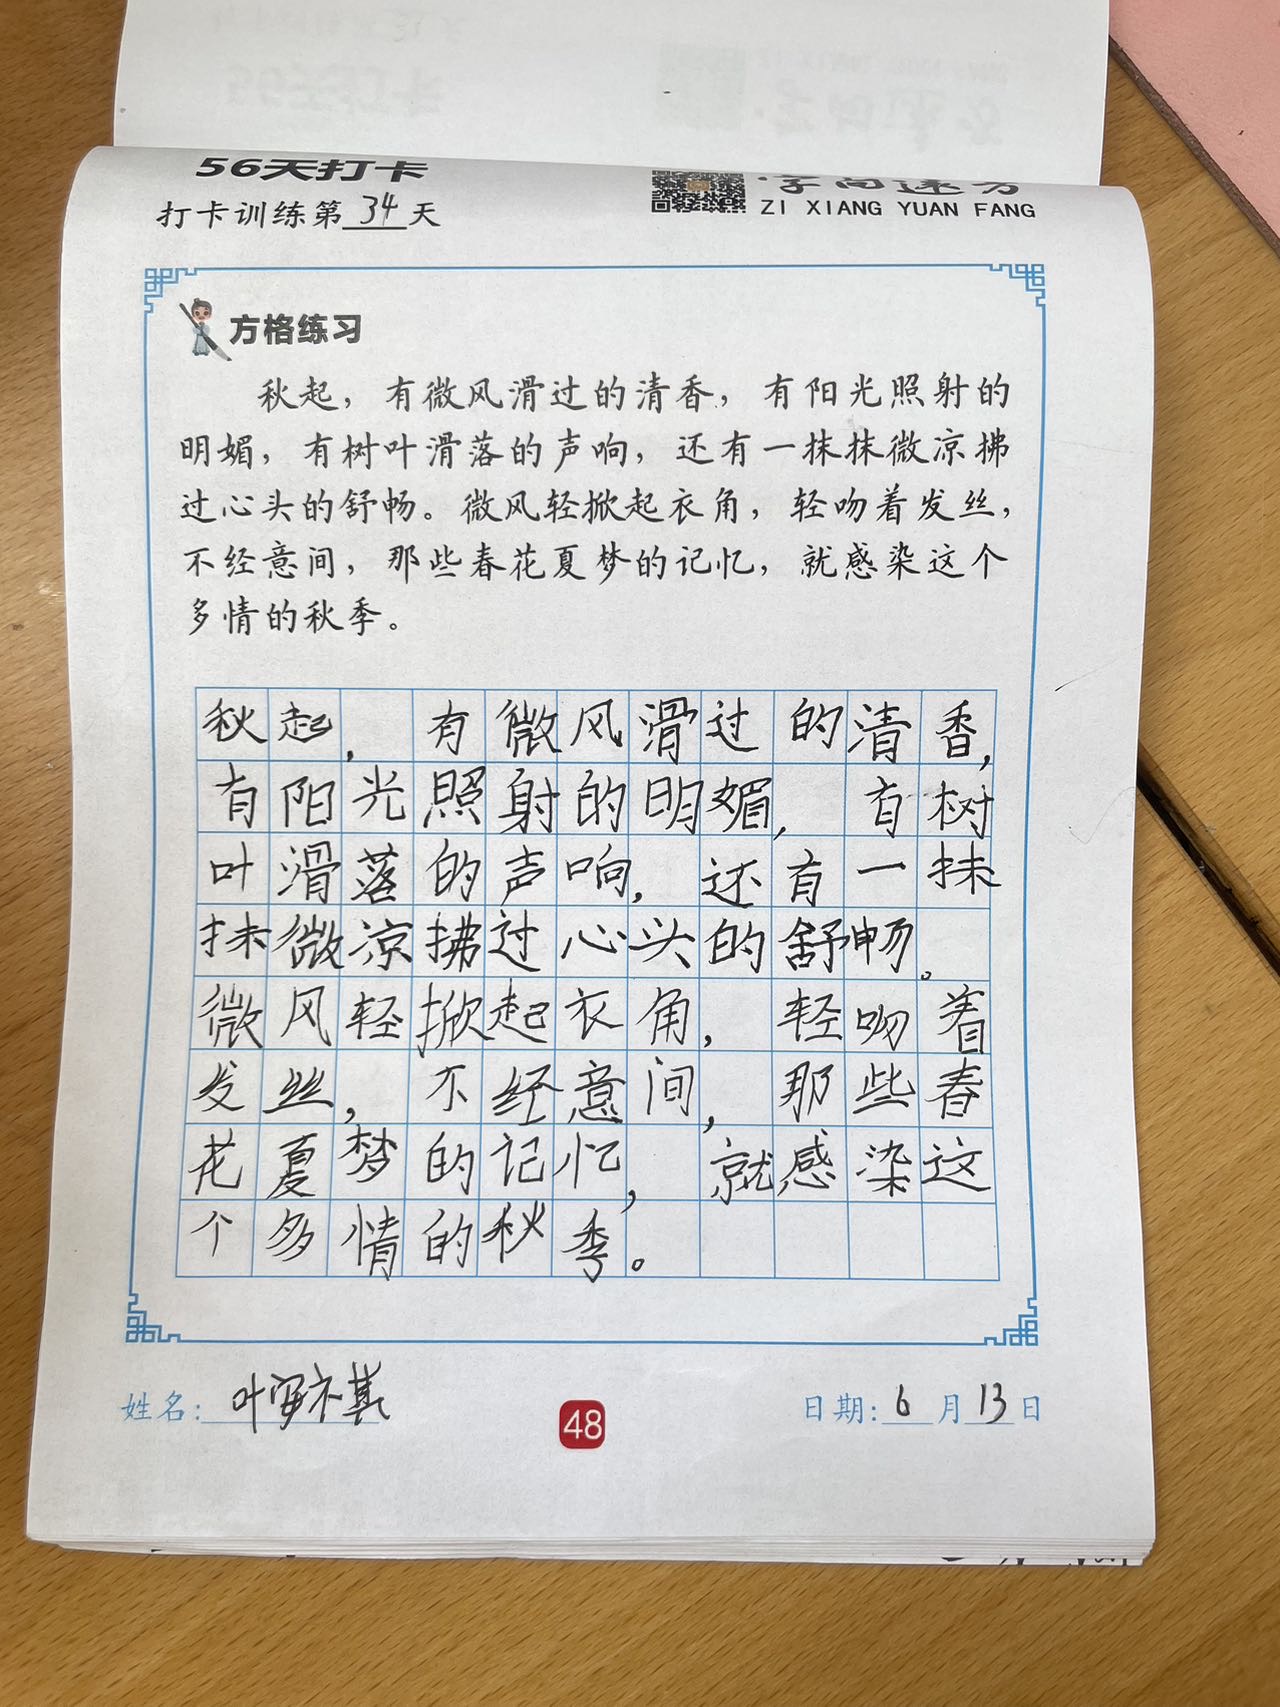 56天打卡
字向速方
ZI XIANG YUAN FANG
打卡训练第34天
方格练习
秋起，有微风滑过的清香，有阳光照射的
明媚，有树叶滑落的声响，还有一抹抹微凉拂
过心头的舒畅。微风轻掀起衣角，轻吻着发丝，
不经意间，那些春花夏梦的记忆，就感染这个
多情的秋季。
秋起，有微风滑过的清香，
有阳光照射的明媚，有树
叶滑落的声响，还有一抹
抹微凉拂过心头的舒畅。
微风轻掀起衣角，轻吻着
发丝，不经意间，那些春
花夏梦的记忆，就感染这
个多情的秋季。
姓名：叶
48
日期：6月13日